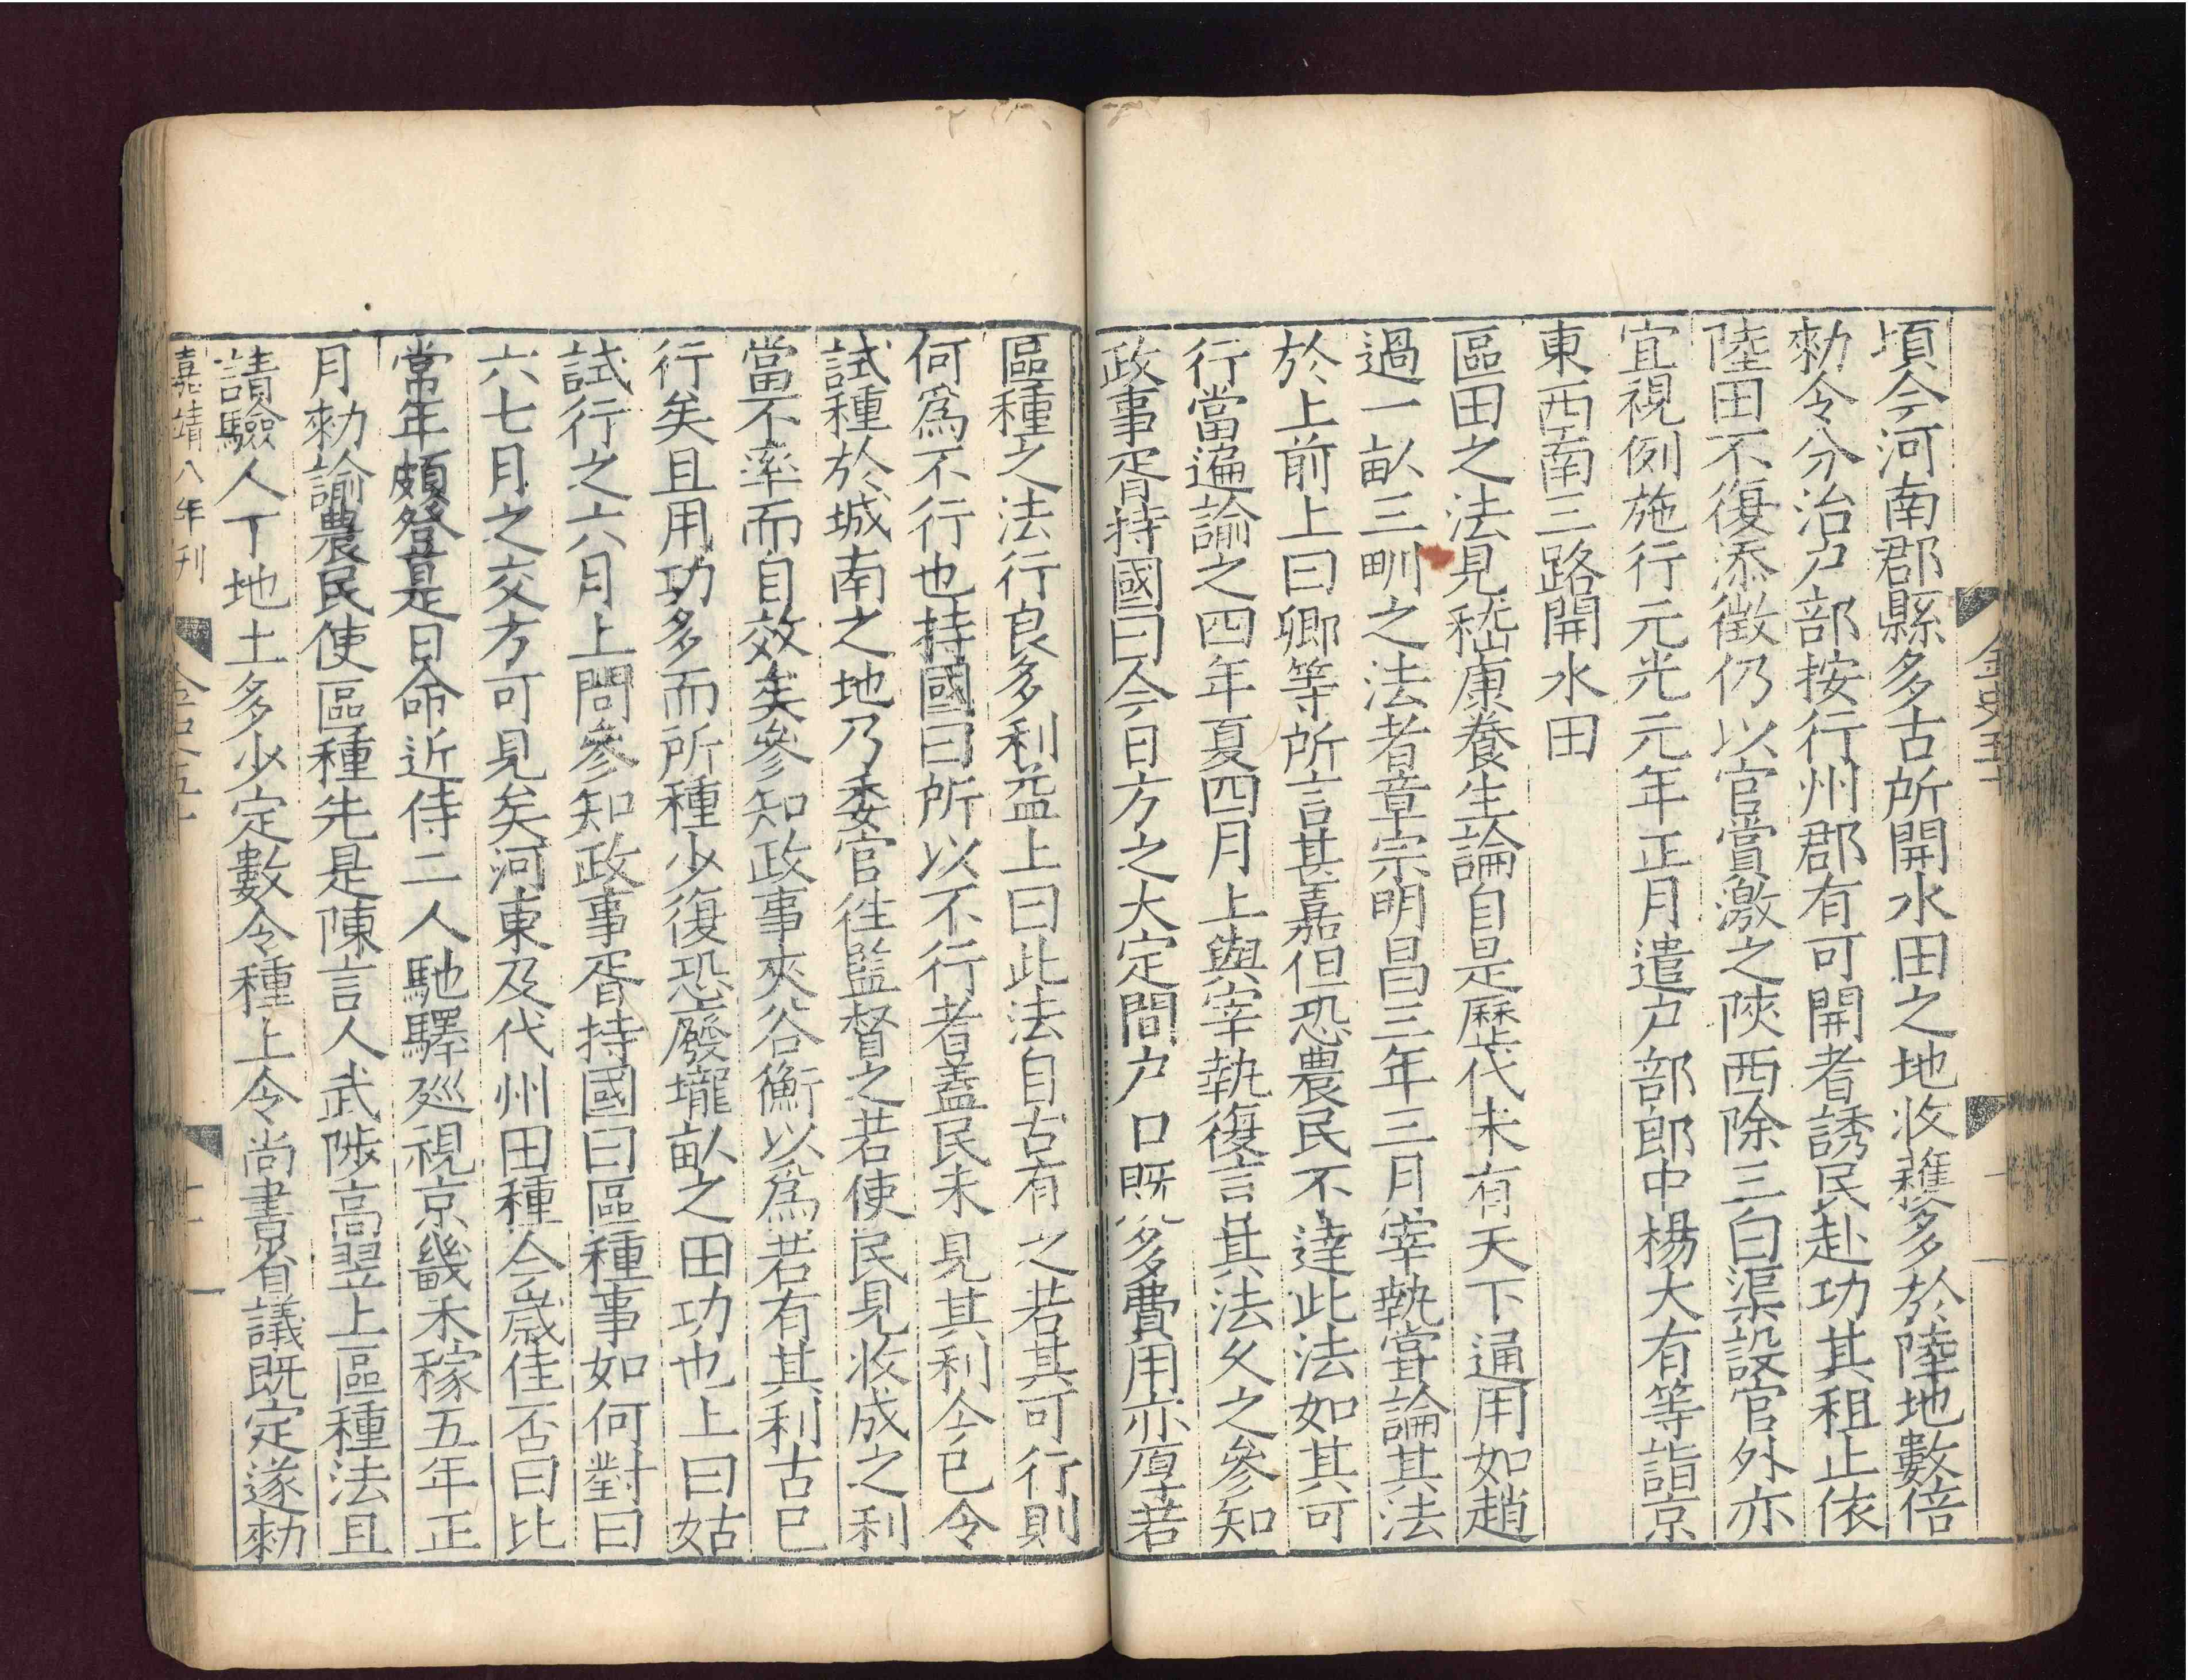 頃今河南郡縣多古所開水田之地收穫多於陸地數倍
勑令分治户部按行州郡有可開者誘民赴功其租止依
陸田不復添徵仍以官賞激之陝西除三白渠設官外亦
宜視例施行元光元年正月遣户部郎中楊大有等詣京
東西南三路開水田
區田之法見嵇康養生論自是歷代未有天下通用如趙
過一畝三甽之法者章宗明昌三年三月宰執嘗論其法
於上前上曰卿等所言甚嘉但恐農民不達此法如其可
行當遍諭之四年夏四月上與宰執復言其法久之參知
政事胥持國曰今日方之大定間户口既多費用亦厚若
區種之法行良多利益上曰此法自古有之若其可行則
何爲不行也持國曰所以不行者蓋民未見其利今已令
試種於城南之地乃委官徃監督之若使民見收成之利
當不率而自效矣參知政事夾谷衡以爲若有其利古已
行矣且用功多而所種少復恐廢壠畝之田功也上曰姑
試行之六月上問參知政事胥持國曰區種事如何對曰
六七月之交方可見矣河東及代州田種今歲佳否曰比
常年頗登是日命近侍二人馳驛廵視京畿禾稼五年正
月勑諭農民使區種先是陳言人武陟高翌上區種法且
請驗人丁地土多少定數令種上令尚書省議既定遂勑
嘉靖八年刊